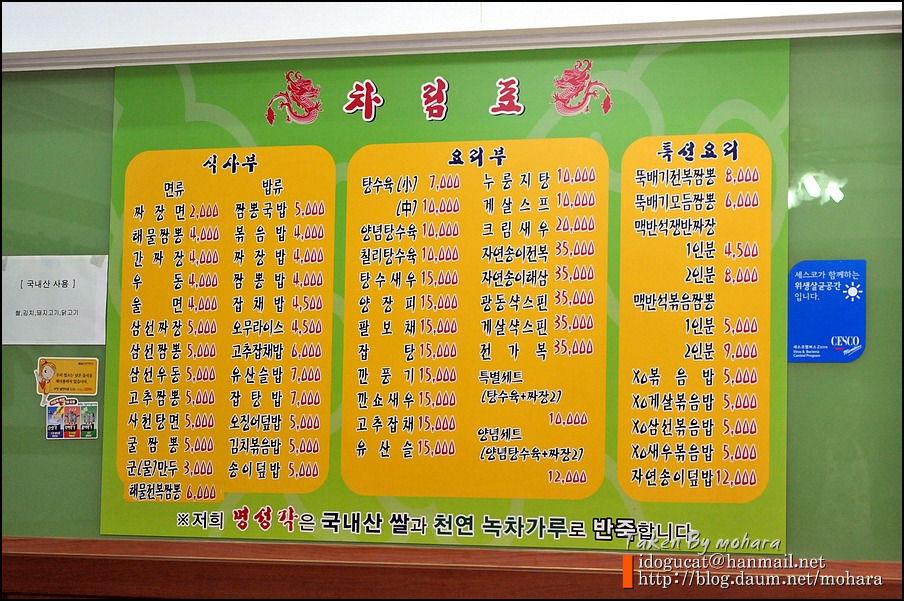 차림표
식사부
면류
짜장면 2,000
해물짬뽕 4,000
간짜장 4,000
우동 4,000
울면 4,000
삼선짜장 5,000
삼선짬뽕 5,000
삼선우동 5,000
고추짬뽕 5,000
사천탕면 5,000
굴짬뽕 5,000
군(물)만두 3,000
해물전복짬뽕 6,000
밥류
짬뽕국밥 5,000
볶음밥 4,000
짜장밥 4,000
짬뽕밥 4,000
잡채밥 4,500
오무라이스 4,500
고추잡채밥 6,000
유산슬밥 7,000
잡탕밥 7,000
오징어덮밥 5,000
김치볶음밥 5,000
송이덮밥 5,000
요리부
탕수육(小) 7,000
(中) 10,000
양념탕수육 10,000
칠리탕수육 10,000
탕수새우 15,000
양장피 15,000
팔보채 15,000
잡탕 15,000
깐풍기 15,000
깐쇼새우 15,000
고추잡채 15,000
유산슬 15,000
누룽지탕 10,000
게살스프 10,000
크림새우 20,000
자연송이전복 35,000
자연송이해삼 35,000
광동샥스핀 35,000
게살샥스핀 35,000
전가복 35,000
특별세트
(탕수육+짜장2)
10,000
양념세트
(양념탕수육+짜장2)
12,000
특선요리
뚝배기전복짬뽕 8,000
뚝배기모듬짬뽕 6,000
맥반석쟁반짜장
1인분 4,500
2인분 8,000
맥반석볶음짬뽕
1인분 5,000
2인분 9,000
XO볶음밥 5,000
XO게살볶음밥 5,000
XO삼선볶음밥 5,000
XO새우볶음밥 5,000
자연송이덮밥 12,000
※저희 명성각은 국내산 쌀과 천연 녹차가루로 반죽합니다.
[ 국내산 사용 ]
쌀,김치,돼지고기,닭고기
세스코가 함께하는
위생살균공간
입니다.
세스코멤버스 Zone
Virus & Bacteria
Control Program
CESCO
Members
Taken By mohara
idogucat@hanmail.net
http://blog.daum.net/mohara